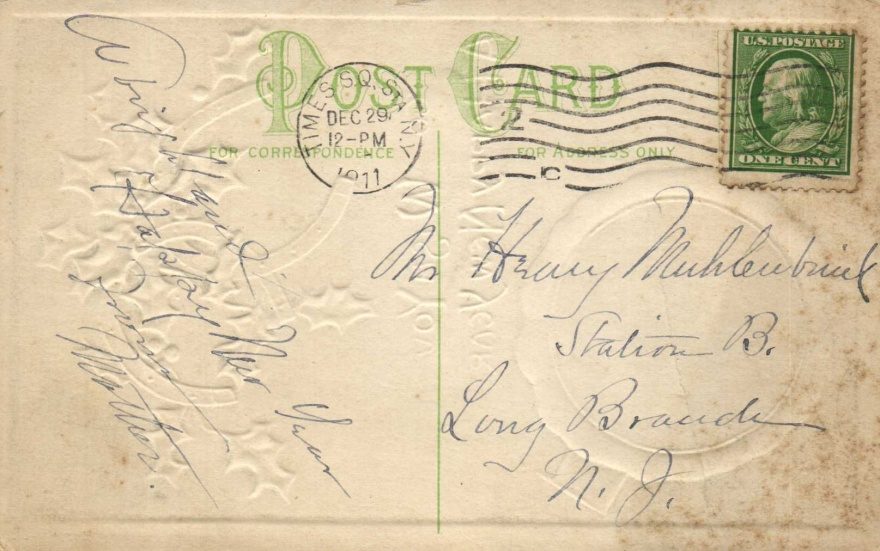 POST CARD
FOR CORRESPONDENCE
FOR ADDRESS ONLY
TIMES SQ. STA. N.Y.
DEC 29
12-PM
1911
2
C
U.S. POSTAGE
ONE CENT
A bright
and
Happy New Year
from
Mother.
Mr Henry
Station B.
Long Branch
N. J.